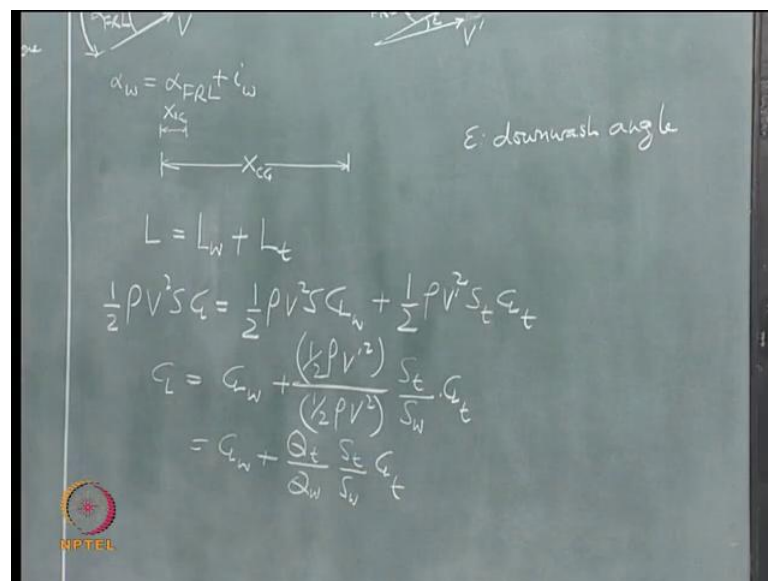 α_FRL V V'
α_w = α_FRL + i_w
X_ac
X_CG
ε: downwash angle
L = L_w + L_t
½ρV²SC_L = ½ρV²SC_Lw + ½ρV'²S_t C_Lt
C_L = C_Lw + (½ρV'²)/(½ρV²) S_t/S_w · C_Lt
= C_Lw + Q_t/Q_w S_t/S_w C_Lt
NPTEL